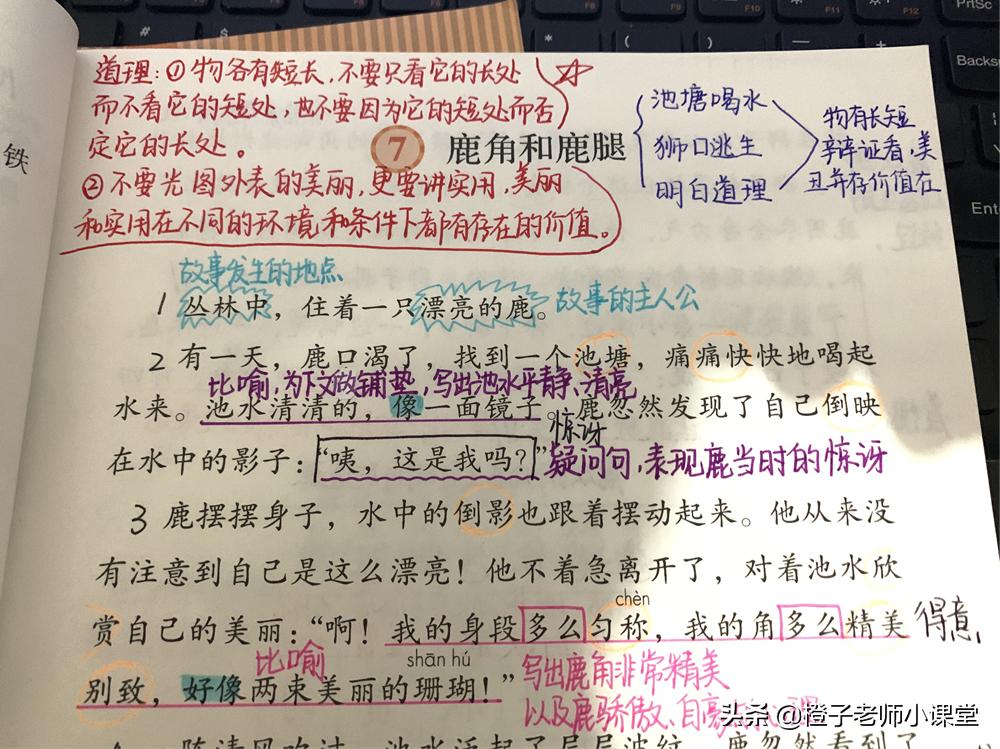 道理:①物各有短长,不要只看它的长处
而不看它的短处,也不要因为它的短处而否
定它的长处。
②不要光图外表的美丽,更要讲实用,美丽
和实用在不同的环境和条件下都有存在的价值。
7 鹿角和鹿腿
池塘喝水
狮口逃生
明白道理
物有长短
辩证看,美
丑并存价值在
铁
故事发生的地点
1 丛林中,住着一只漂亮的鹿。故事的主人公
2 有一天,鹿口渴了,找到一个池塘,痛痛快快地喝起
比喻,为下文做铺垫,写出池水平静、清亮
水来。池水清清的,像一面镜子。鹿忽然发现了自己倒映
惊讶
在水中的影子:“咦,这是我吗?”疑问句,表现鹿当时的惊讶
3 鹿摆摆身子,水中的倒影也跟着摆动起来。他从来没
有注意到自己是这么漂亮!他不着急离开了,对着池水欣
chèn
赏自己的美丽:“啊!我的身段多么匀称,我的角多么精美 得意
比喻
shān hú
别致,好像两束美丽的珊瑚!”
写出鹿角非常精美
以及鹿骄傲、自豪
头条 @橙子老师小课堂
Backs
PrtSc
Ent
F8
F9
F10
F11
F12